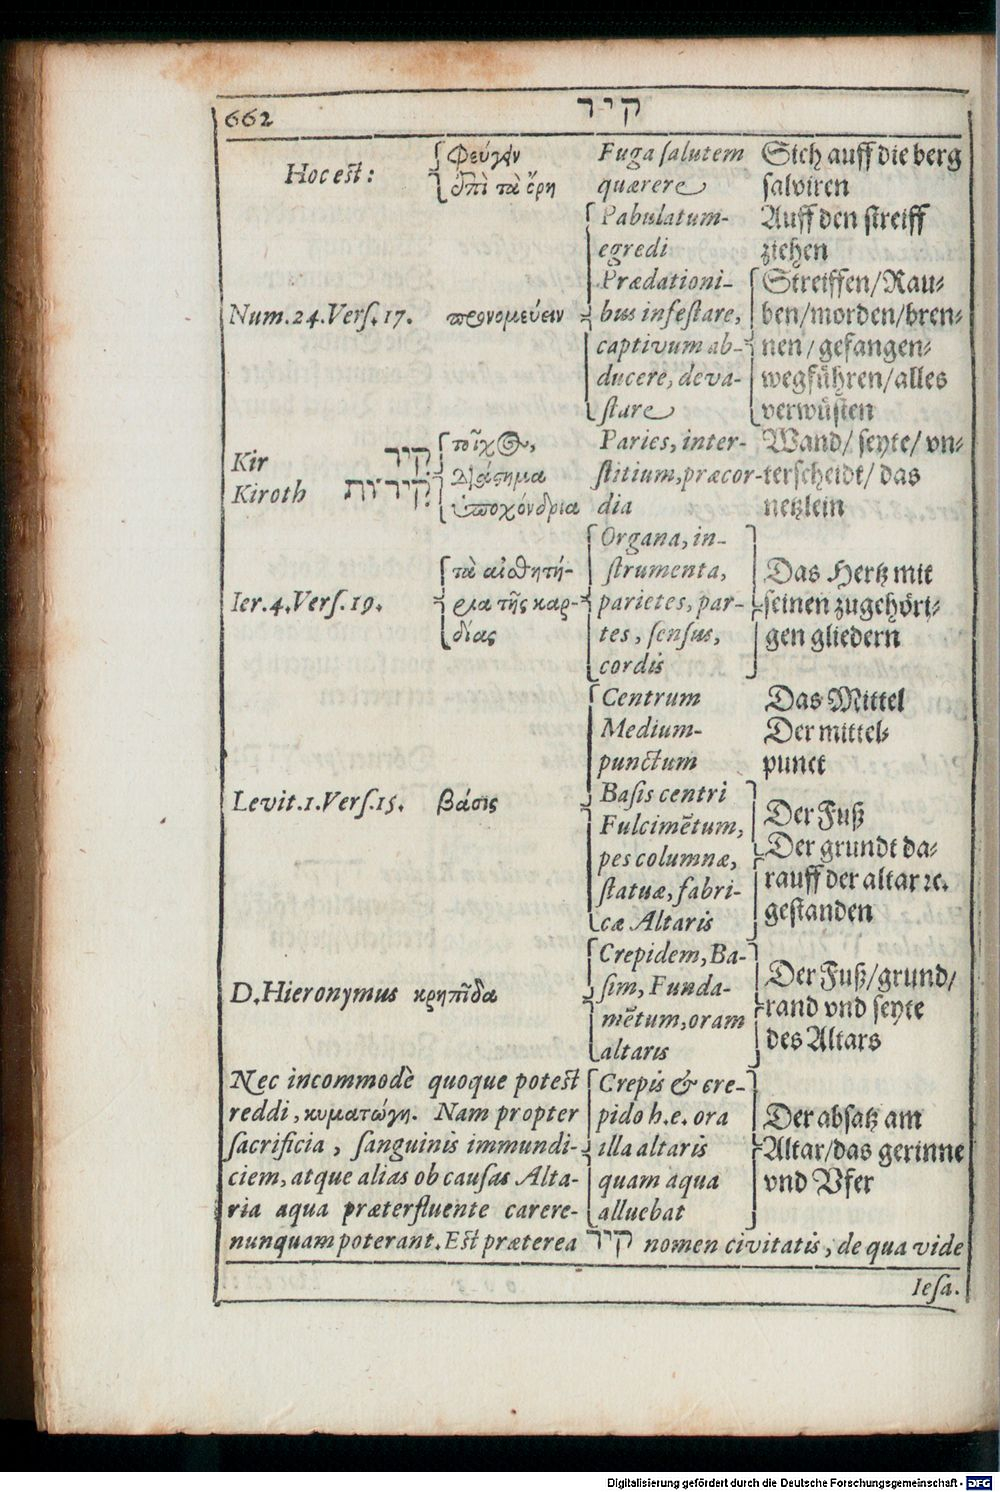 662
קיר
Hoc est:
Φεύγειν
ἐπὶ τὰ ὄρη
Fuga salutem
quærere
Sich auff die berg
salviren
Num.24.Vers.17.
προνομεύειν
Pabulatum-
egredi
Prædationi-
bus infestare,
captivum ab-
ducere, deva-
stare
Auff den streiff
ziehen
Streiffen/Rau-
ben/morden/bren-
nen/gefangen-
wegführen/alles
verwüsten
Kir קיר
Kiroth קירות
τοῖχος,
διάσημα
ὑποχόνδρια
Paries, inter-
stitium, præcor-
dia
Wand/ seyte/ vn-
terscheidt/ das
netzlein
Ier.4.Vers.19.
τὰ αἰσθητή-
ρια τῆς καρ-
δίας
Organa, in-
strumenta,
parietes, par-
tes, sensus,
cordis
Das Hertz mit
seinen zugehöri-
gen gliedern
Levit.1.Vers.15.
βάσις
Centrum
Medium-
punctum
Basis centri
Fulcimẽtum,
pes columnæ,
statuæ, fabri-
cæ Altaris
Das Mittel
Der mittel-
punct
Der Fuß
Der grundt da-
rauff der altar ꝛc.
gestanden
D.Hieronymus κρηπῖδα
Crepidem, Ba-
sim, Funda-
mẽtum, oram
altaris
Der Fuß/grund/
rand vnd seyte
des Altars
Nec incommodè quoque potest
reddi, κυματώγη. Nam propter
sacrificia, sanguinis immundi-
ciem, atque alias ob causas Alta-
ria aqua præterfluente carere-
Crepis & cre-
pido h.e. ora
illa altaris
quam aqua
alluebat
Der absatz am
Altar/das gerinne
vnd Vfer
nunquam poterant. Est præterea קיר nomen civitatis, de qua vide
Iesa.
Digitalisierung gefördert durch die Deutsche Forschungsgemeinschaft - DFG